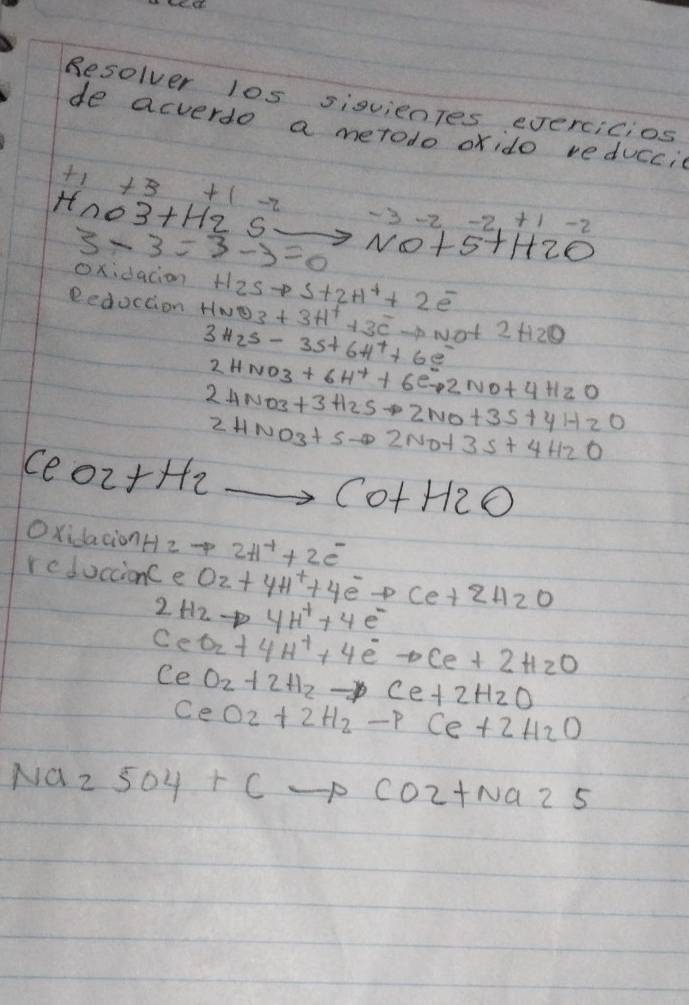 Resolver los siguientes ejercicios
de acuerdo a metodo oxido reduccio
+1 +3 +1 -2 -3 -2 -2 +1 -2
HnO3+H2 S → NO+S+H2O
3-3=3-3=0
Oxidacion H2S→S+2H⁺+2e⁻
Reduccion HNO3+3H⁺+3e⁻→NO+2H2O
3H2S-3S+6H⁺+6e⁻
2HNO3+6H⁺+6e⁻→2NO+4H2O
2HNO3+3H2S→2NO+3S+4H2O
2HNO3+S→2NO+3S+4H2O
CeO2+H2 → CO+H2O
Oxidacion H2→2H⁺+2e⁻
reduccion CeO2+4H⁺+4e⁻→Ce+2H2O
2H2→4H⁺+4e⁻
CeO2+4H⁺+4e⁻→Ce+2H2O
CeO2+2H2→Ce+2H2O
CeO2+2H2→Ce+2H2O
Na2SO4+C→CO2+Na2S